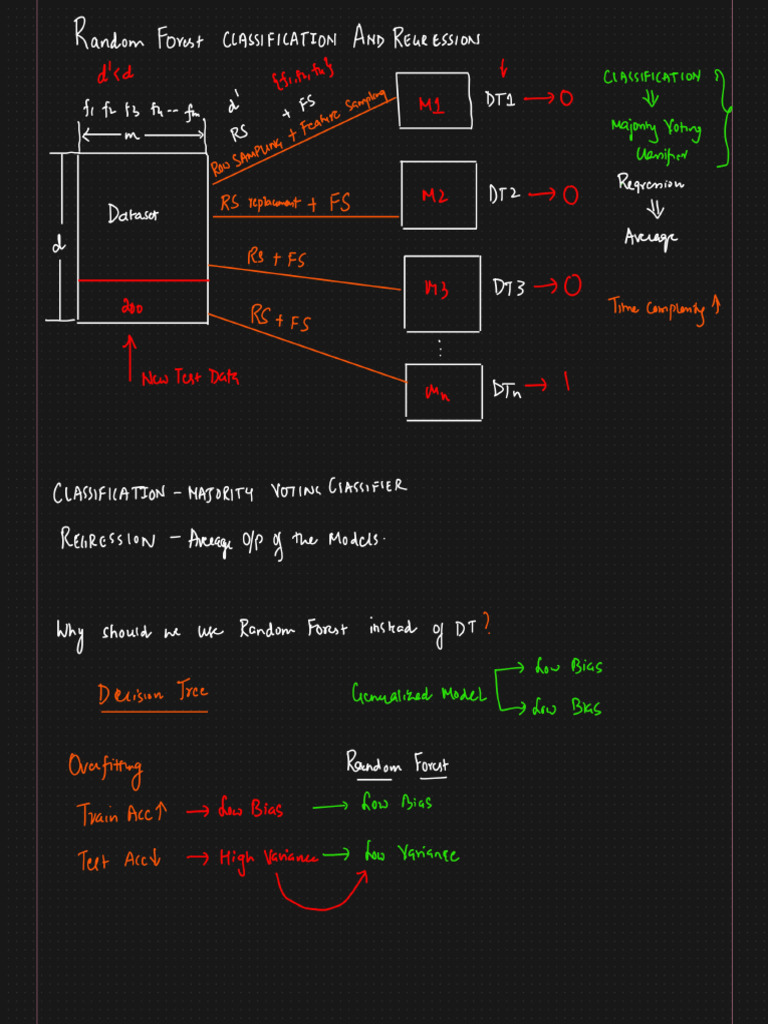 Random Forest CLASSIFICATION AND REGRESSION
d'<d
{f1,f2,fn}
f1 f2 f3 f4 -- fm
d'
+ FS
RS
m
Row SAMPLING + Feature Sampling
M1
DT1 → 0
CLASSIFICATION
⇓
Majority Voting
Classifier
Dataset
d
RS replacement + FS
M2
DT2 → 0
Regression
⇓
Average
Rs + FS
M3
DT3 → 0
200
RS + FS
Time Complexity ↑
⋮
New Test Data
Mn
DTn → 1
CLASSIFICATION – MAJORITY VOTING CLASSIFIER
REGRESSION – Average O/P of the Models.
Why should we use Random Forest instead of DT?
Decision Tree
Generalized Model
→ Low Bias
→ Low Bias
Overfitting
Random Forest
Train Acc ↑ → Low Bias → Low Bias
Test Acc ↓ → High Variance → Low Variance